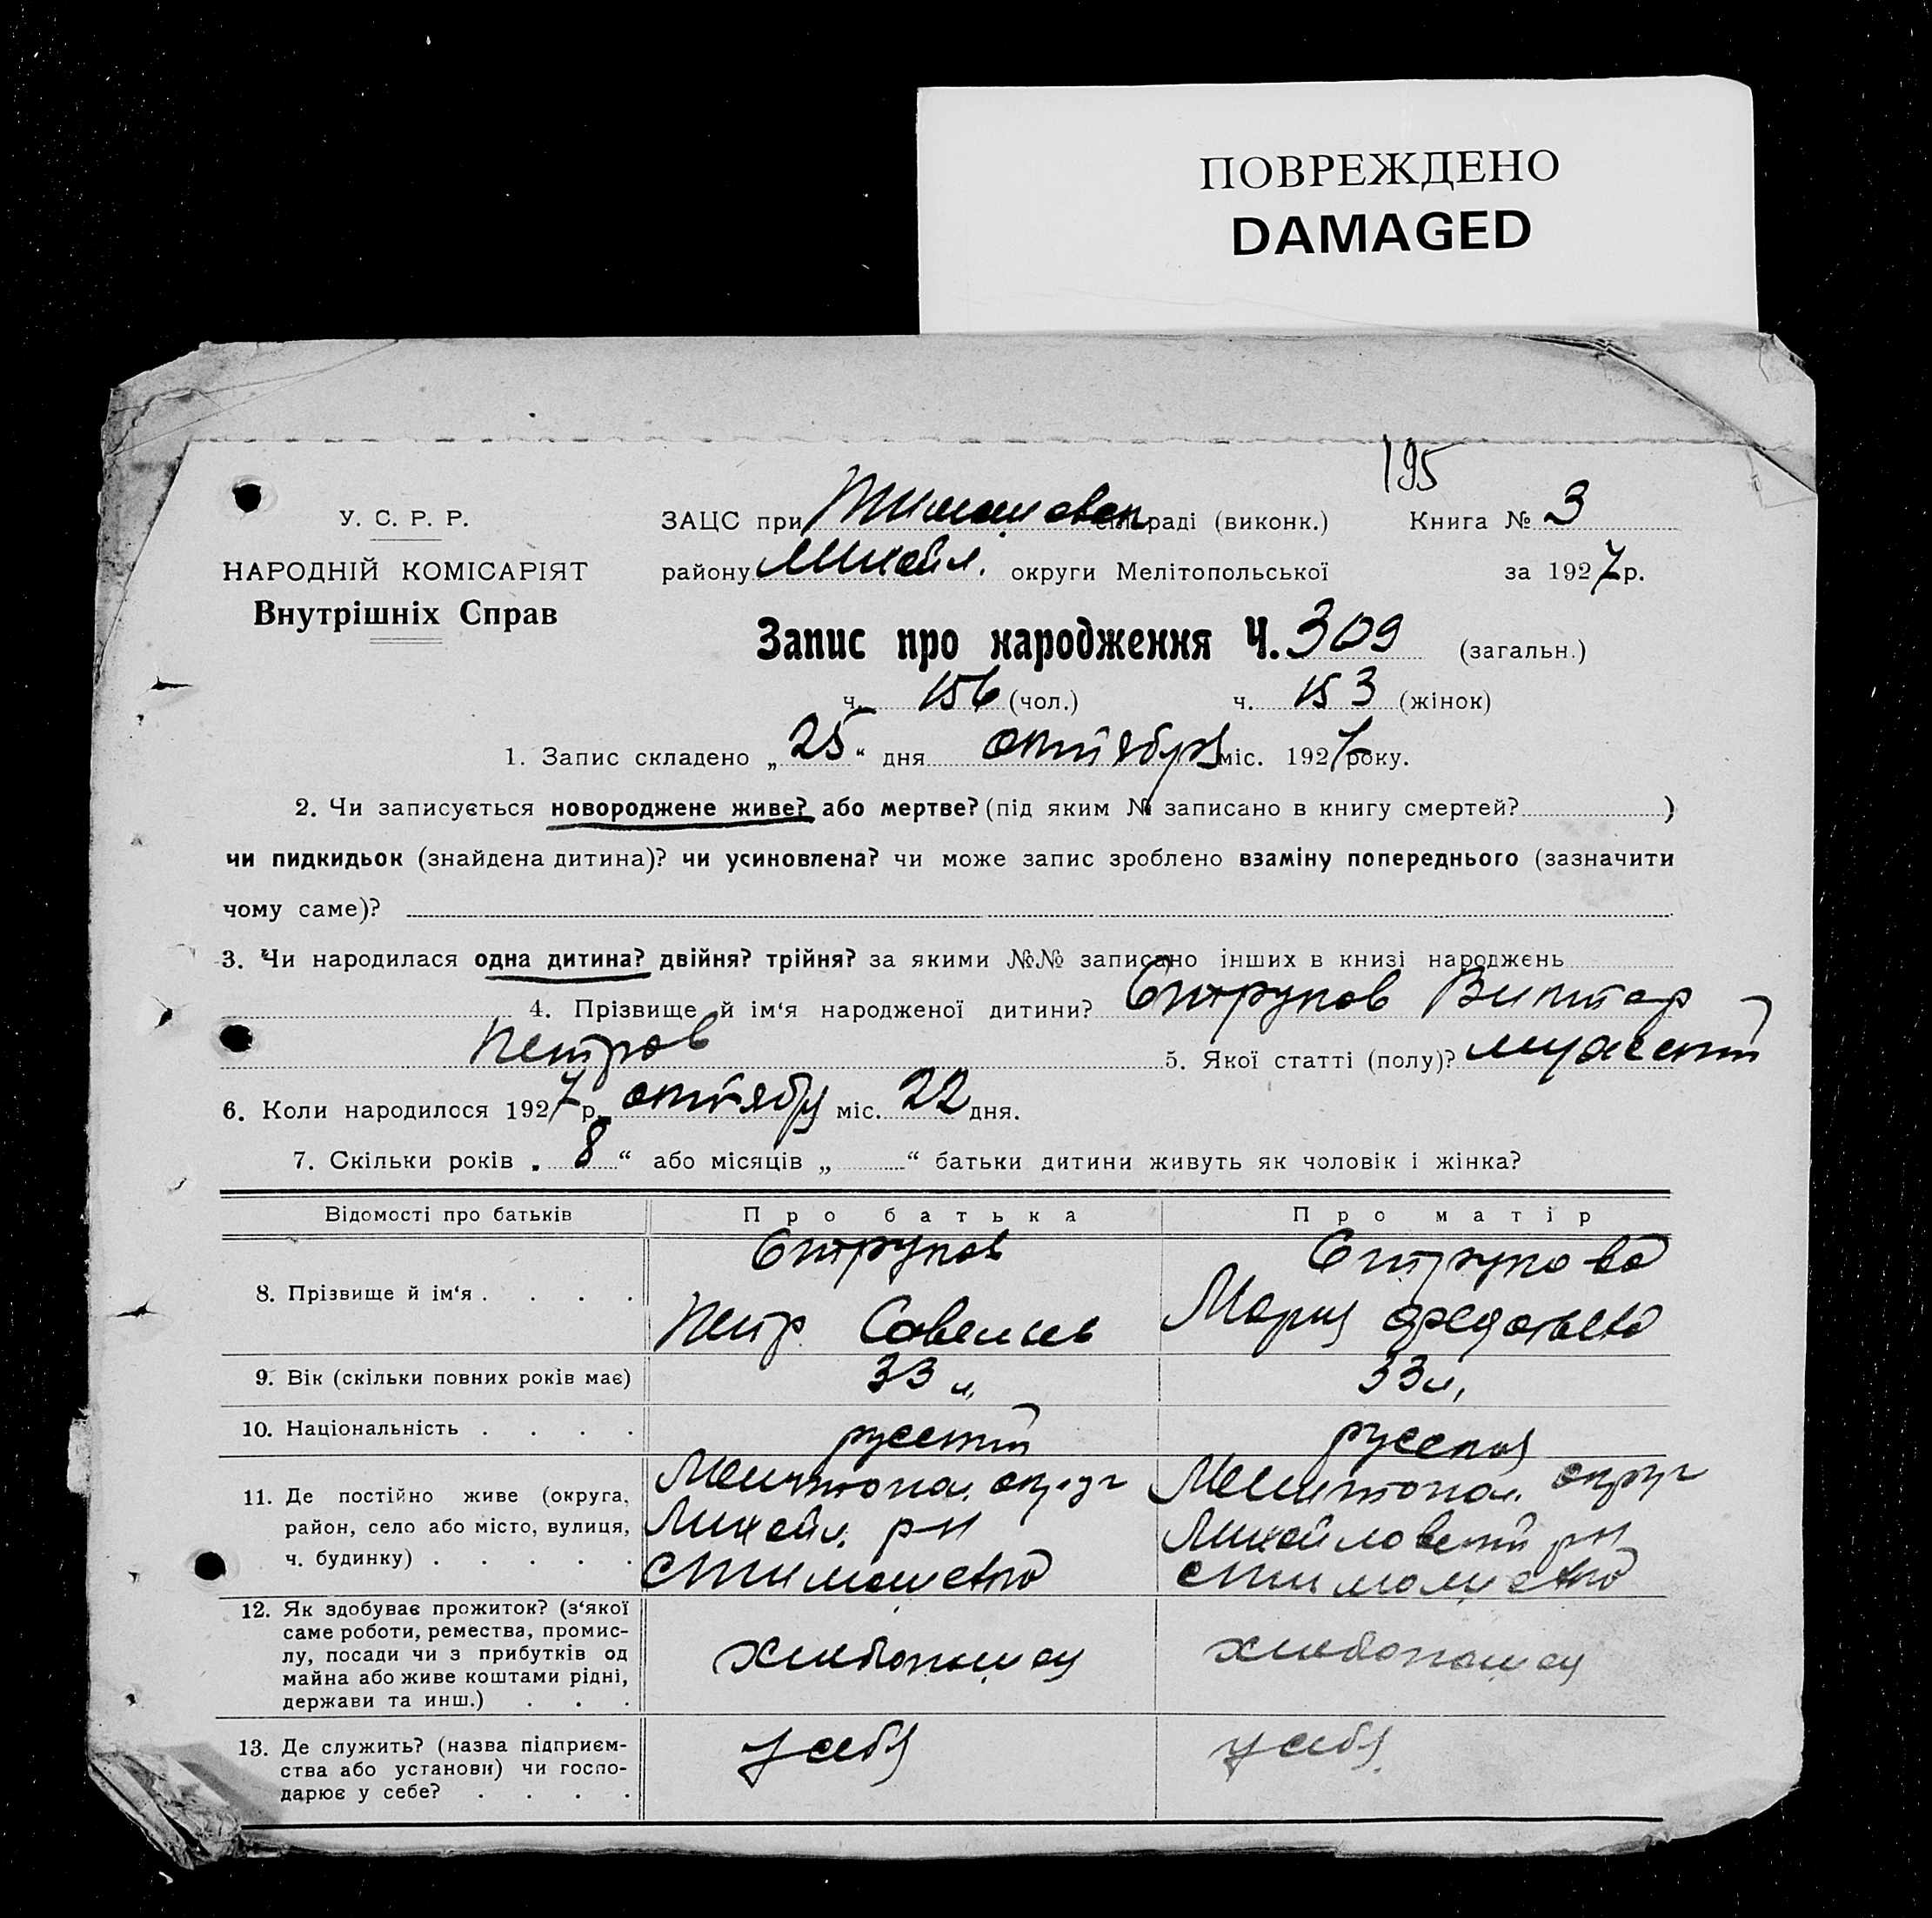 ПОВРЕЖДЕНО
DAMAGED
195
У. С. Р. Р.
НАРОДНІЙ КОМІСАРІЯТ
Внутрішніх Справ
ЗАЦС при Тимашовск сільраді (виконк.) Книга № 3
району Михайл. округи Мелітопольської за 1927 р.
Запис про народження Ч. 309 (загальн.)
ч. 156 (чол.) ч. 153 (жінок)
1. Запис складено „ 25 “ дня октября міс. 1927 року.
2. Чи записується новороджене живе? або мертве? (під яким № записано в книгу смертей? )
чи пидкидьок (знайдена дитина)? чи усиновлена? чи може запис зроблено взаміну попереднього (зазначити
чому саме)?
3. Чи народилася одна дитина? двійня? трійня? за якими №№ записано інших в книзі народжень
4. Прізвище й ім‘я народженої дитини? Струков Виктор
Петров 5. Якої статті (полу)? мужской
6. Коли народилося 1927 р. октября міс. 22 дня.
7. Скільки років „ 8 “ або місяців „ “ батьки дитини живуть як чоловік і жінка?
Відомості про батьків Про батька Про матір
8. Прізвище й ім‘я . . . . Струков Струкова
Петр Савельев Мария
9. Вік (скільки повних років має) 33 л. 33 л.
10. Національність . . . . русский русская
11. Де постійно живе (округа, Мелитопол. округ Мелитопол. округ
район, село або місто, вулиця, Михайл. р-н Михайловский р-н
ч. будинку) . . . . .
12. Як здобуває прожиток? (з‘якої
саме роботи, ремества, промис-
лу, посади чи з прибутків од хлебопашец хлебопашец
майна або живе коштами рідні,
держави та инш.) . . .
13. Де служить? (назва підприєм- у себя у себя
ства або установи) чи госпо-
дарює у себе? . . . .